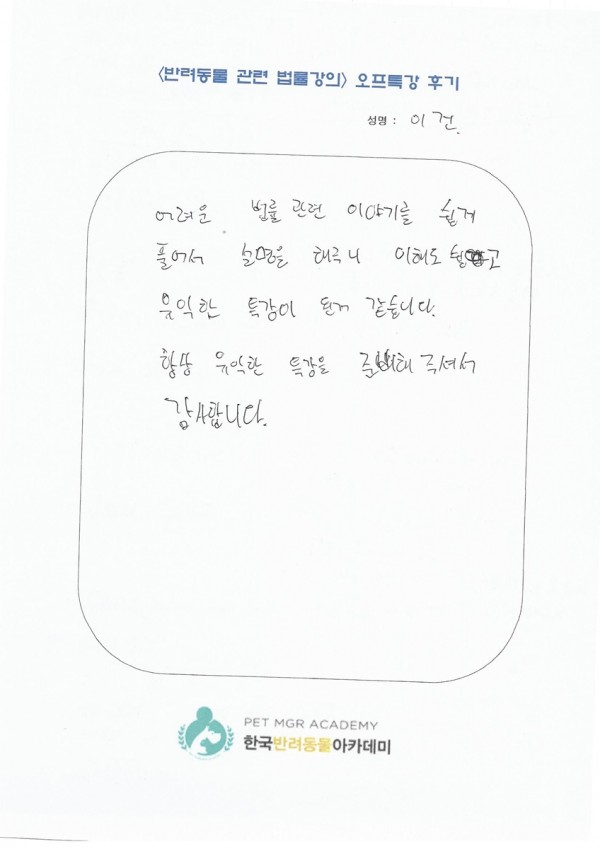 <반려동물 관련 법률강의> 오프특강 후기
성명 : 이건.
어려운 법률 관련 이야기를 쉽게
풀어서 설명을 해주니 이해도 쉽고
유익한 특강이 된거 같습니다.
항상 유익한 특강을 준비해 주셔서
감사합니다.
PET MGR ACADEMY
한국반려동물아카데미